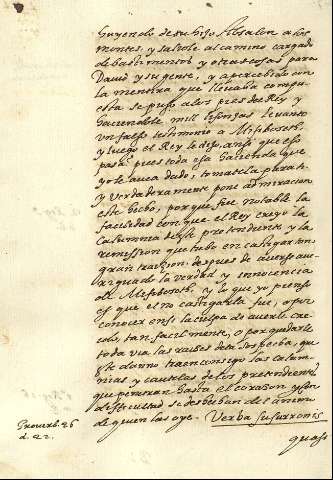 huyendo de su hijo Absalon a los
montes, y saliole al camino cargado
de bastimentos y otras cosas para
David y su gente, y apercebido con
la mentira que llevaba compu
esta se puso a los pies del Rey y
haciendole mil lisonjas levanto
un falso testimonio a Mifiboseth,
y luego el Rey le dijo, ansi que eso
pasa? pues toda esa hacienda que
yo le avia dado, tomatela para ti.
y verdaderamente pone admiracion
este hecho, porque fue notable la
facilidad con que el Rey creyo la
calumnia deste pretendiente y la
remission que tubo en castigar tan
gran traycion, despues de averse ave
riguado la verdad y innocencia
de Mifiboseth, y lo que yo pienso
es que el no castigarla fue, o por
conocer en si la culpa de averle cre
ido, tan facilmente, o por quedarle
toda via las raices de la sospecha, que
este daño traen consigo las calum
nias y cautelas de los pretendientes
que penetran hasta el corazon y con
dificultad se desarraiban del animo
de quien las oye. Verba susurronis
Proverb. 26
d. 22.
quasi